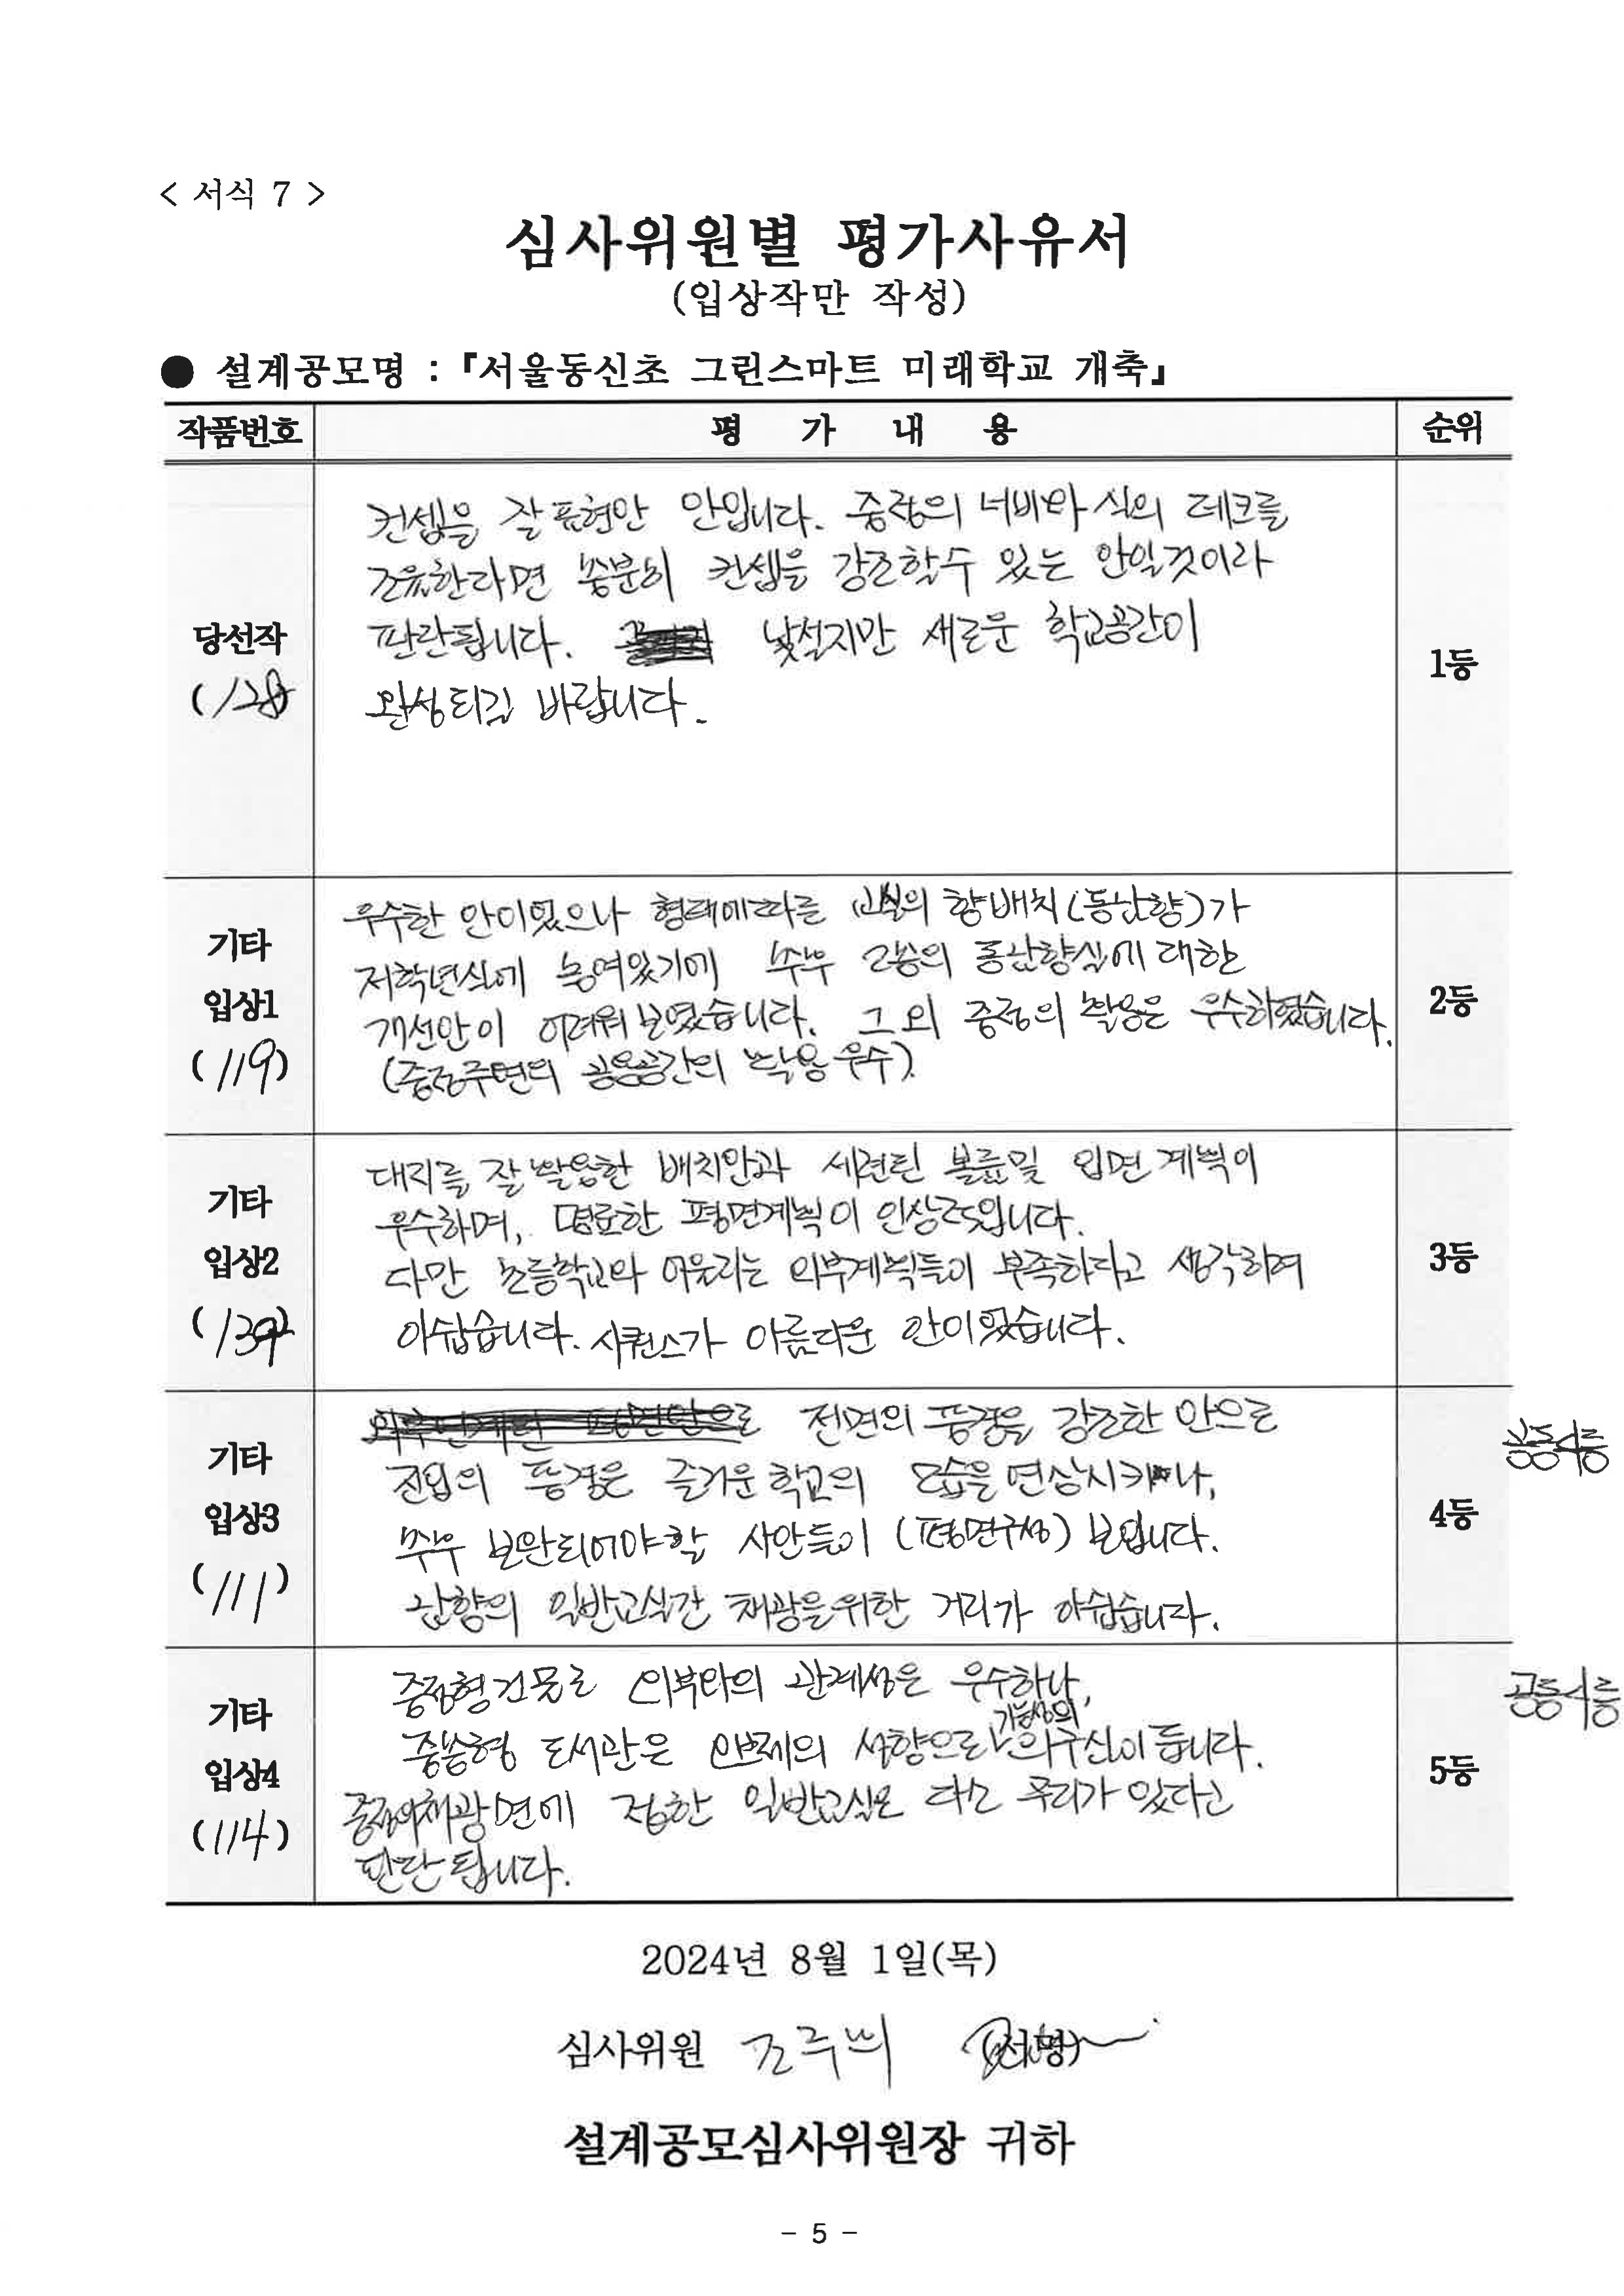 < 서식 7 >
심사위원별 평가사유서
(입상작만 작성)
● 설계공모명 : 『서울동신초 그린스마트 미래학교 개축』
작품번호 평 가 내 용 순위
당선작
(128)
컨셉을 잘 표현한 안입니다. 중정의 너비와 식의 데크를
조율한다면 충분히 컨셉을 강조할수 있는 안일것이라
판단됩니다. 낯설지만 새로운 학교공간이
완성되길 바랍니다.
1등
기타
입상1
(119)
우수한 안이었으나 형태에따른 교실의 향배치(동남향)가
저학년실에 놓여있기에 추후 2층의 동남향실에 대한
개선안이 어려워 보였습니다. 그 외 중정의 활용은 우수하였습니다.
(중정주변의 공용공간의 활용 우수).
2등
기타
입상2
(139)
대지를 잘 활용한 배치안과 세련된 볼륨및 입면 계획이
우수하며, 명료한 평면계획이 인상적입니다.
다만 초등학교와 어울리는 외부계획들이 부족하다고 생각하며
아쉽습니다. 시퀀스가 아름다운 안이었습니다.
3등
기타
입상3
(111)
전면의 풍경을 강조한 안으로
진입의 풍경은 즐거운 학교의 모습을 연상시키나,
추후 보완되어야할 사안들이 (평면구성) 보입니다.
남향의 일반교실간 채광을위한 거리가 아쉽습니다.
4등
공동4등
기타
입상4
(114)
중정형건물로 외부와의 관계성은 우수하나,
중층형 도서관은 의 성향으로 기능상의 의구심이 듭니다.
중정의채광면에 접한 일반교실은 다소 무리가 있다고
판단됩니다.
5등
공동4등
2024년 8월 1일(목)
심사위원 조주 (서명)
설계공모심사위원장 귀하
- 5 -